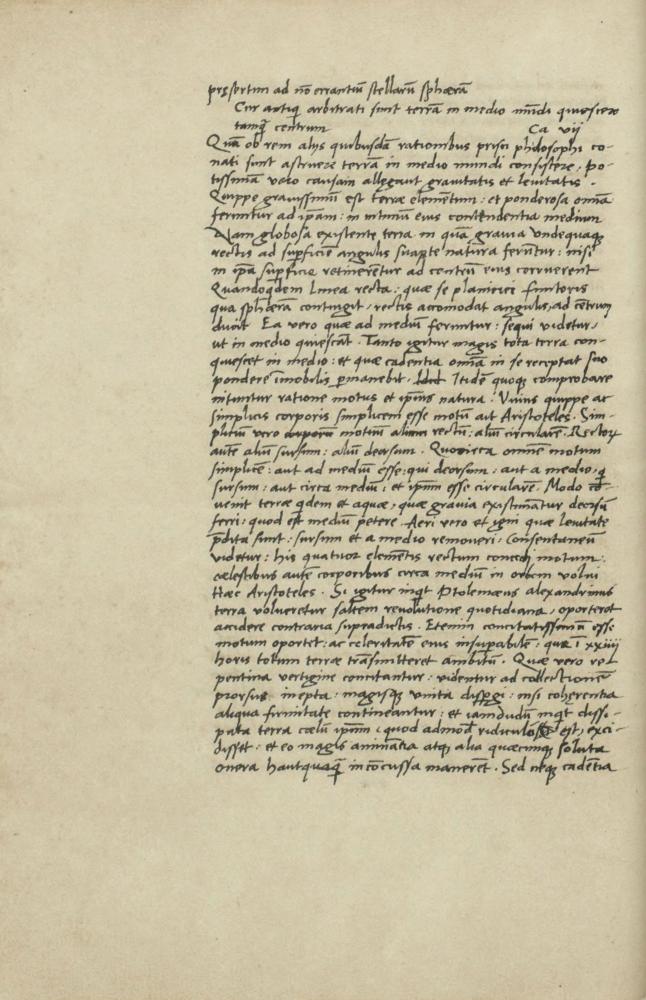 pręsertim ad nō errantiū stellarū sphæræ
Cur antiq arbitrati sint terrā in medio mūdi quiescere
tamq̄ centrum Ca vii
Quā ob rem aliis quibusdā rationibus prisci philosophi co-
nati sunt astruere terrā in medio mundi consistere. Po-
tissimā vero causam allęgant gravitatis et levitatis.
Quippe gravissimū est terræ elemētum: et ponderosa omīa
feruntur ad ip̄am: in intimū eius contēndentia medium
Nam globosa existente terra in quā gravia undequaq;
rectis ad sup̄ficiē angulis suapte natura ferūtur: nisi
in ip̄a sup̄ficie retinerētur ad centrū eius corruerent
Quandoq̇dem linea recta: quæ se planiciei finitoris
qua sphæræ contingit, rectis accomodat angulis, ad cētrum
ducit Ea vero quæ ad mediū feruntur: sequi videtur,
ut in medio quiescāt. Tanto igitur magis tota terra con-
quiescet in medio: et quæ cadentia omīa in se receptat suo
pondere īmobilis p̱manebit. Itidē quoq; comprobare
nituntur ratione motus et ip̄ius natura. Unius quippe ac
simplicis corporis simplicem esse motū ait Aristoteles. Sim-
plicium vero motuū aliū rectū: aliū circularē. Rectorꝝ
autē aliū sursum: aliū deorsum. Quocirca omnē motum
simplicē: aut ad mediū esse: qui deorsum, aut a medio, q
sursum: aut circa mediū: et ip̄um esse circularē. Modo cō-
venit terræ q̇dem et aquæ, quæ gravia existimātur deorsū
ferri: quod est mediū petere. Aeri vero et igni quæ levitate
p̄dita sunt: sursum et a medio removeri. Consentaneū
videtur: his quatuor elemētis rectum concedi motum:
cælestibus autē corporibus circa mediū in orbem volui
Hæc Aristoteles. Si igitur inq̇t Ptolemæus alexandrinus
terra volveretur saltem revolutione quotidiana, oporteret
accidere contraria supradictis. Etenim concitatissimū esse
motum oporteret: ac celeritatē eius insup̱abilē: quæ ī xxiiii
horis totum terræ trāsmitteret ambitū. Quæ vero re-
pentina vertigine concitantur: videntur ad collectionē
prorsus inepta: magisq; unita disp̱gi: nisi cohęrentia
aliqua firmitate contineantur: et iamdudū inq̇t dissi-
pata terra cælū ipsum, quod admodū ridiculū est, exci-
disset: et eo magis animātia atq; alia quæcunq; soluta
onera hautquaq̄ incōcussa manerēt. Sed neq; cadētia